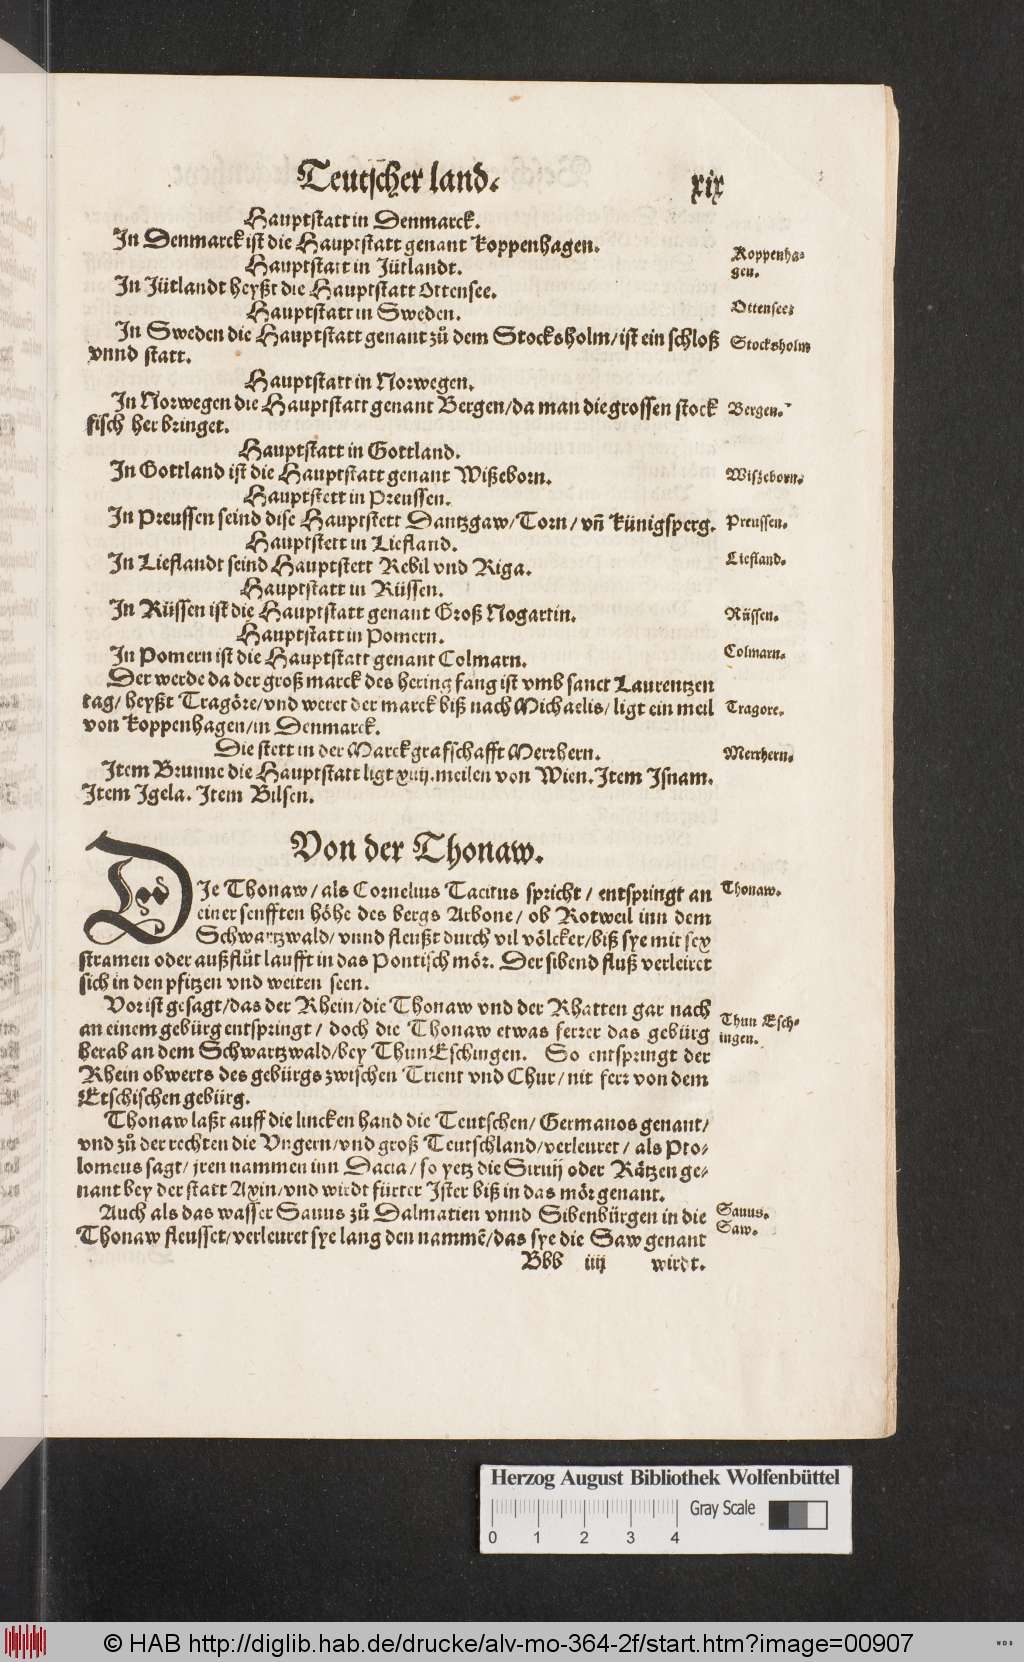 Teutscher land.
xix
Hauptstatt in Denmarck.
In Denmarck ist die Hauptstatt genant Koppenhagen.
Koppenha-
gen.
Hauptstatt in Jütlandt.
In Jütlandt heyßt die Hauptstatt Ottensee.
Ottensee:
Hauptstatt in Sweden.
In Sweden die Hauptstatt genant zů dem Stocksholm/ist ein schloß
Stocksholm
vnnd statt.
Hauptstatt in Norwegen.
In Norwegen die Hauptstatt genant Bergen/da man die grossen stock
Bergen.
fisch her bringet.
Hauptstatt in Gottland.
In Gottland ist die Hauptstatt genant Wißeborn.
Wißeborn.
Hauptstett in Preussen.
In Preussen seind dise Hauptstett Dantzgaw/Torn/ vñ Künigsperg.
Preussen.
Hauptstett in Liefland.
In Lieflandt seind Hauptstett Rebil vnd Riga.
Liefland.
Hauptstatt in Rüssen.
In Rüssen ist die Hauptstatt genant Groß Nogartin.
Rüssen.
Hauptstatt in Pomern.
In Pomern ist die Hauptstatt genant Colmarn.
Colmarn.
Der werde da der groß marck des hering fang ist vmb sanct Laurentzen
tag/ heyßt Tragöre/vnd weret der marck biß nach Michaelis/ ligt ein meil
Tragore.
von Koppenhagen/in Denmarck.
Die stett in der Marckgrafschafft Merrhern.
Merrhern.
Item Brunne die Hauptstatt ligt xviij.meilen von Wien. Item Isnam.
Item Igela. Item Bilsen.
Von der Thonaw.
DIe Thonaw/als Cornelius Tacitus spricht/ entspringt an
Thonaw.
einer senfften höhe des bergs Arbone/ ob Rotweil inn dem
Schwartzwald/ vnnd fleußt durch vil völcker/biß sye mit sex
stramen oder außflůt laufft in das Pontisch mör. Der sibend fluß verleiret
sich in den pfitzen vnd weiten seen.
Vor ist gesagt/das der Rhein/die Thonaw vnd der Rhatten gar nach
an einem gebürg entspringt/ doch die Thonaw etwas ferrer das gebürg
Thun Esch-
ingen.
herab an dem Schwartzwald/bey Thun Eschingen. So entspringt der
Rhein obwerts des gebürgs zwischen Trient vnd Chur/nit ferr von dem
Etschischen gebürg.
Thonaw laßt auff die lincken hand die Teutschen/ Germanos genant/
vnd zů der rechten die Vngern/vnd groß Teutschland/verleuret/ als Pto-
lomeus sagt/ jren nammen inn Dacia/ so yetz die Siruij oder Rätzen ge-
nant bey der statt Axin/vnd wirdt fürter Ister biß in das mör genant.
Auch als das wasser Sauus zů Dalmatien vnnd Sibenbürgen in die
Sauus.
Saw.
Thonaw fleusset/verleuret sye lang den nammē/das sye die Saw genant
Bbb iiij wirdt.
Herzog August Bibliothek Wolfenbüttel
Gray Scale
0 1 2 3 4
© HAB http://diglib.hab.de/drucke/alv-mo-364-2f/start.htm?image=00907